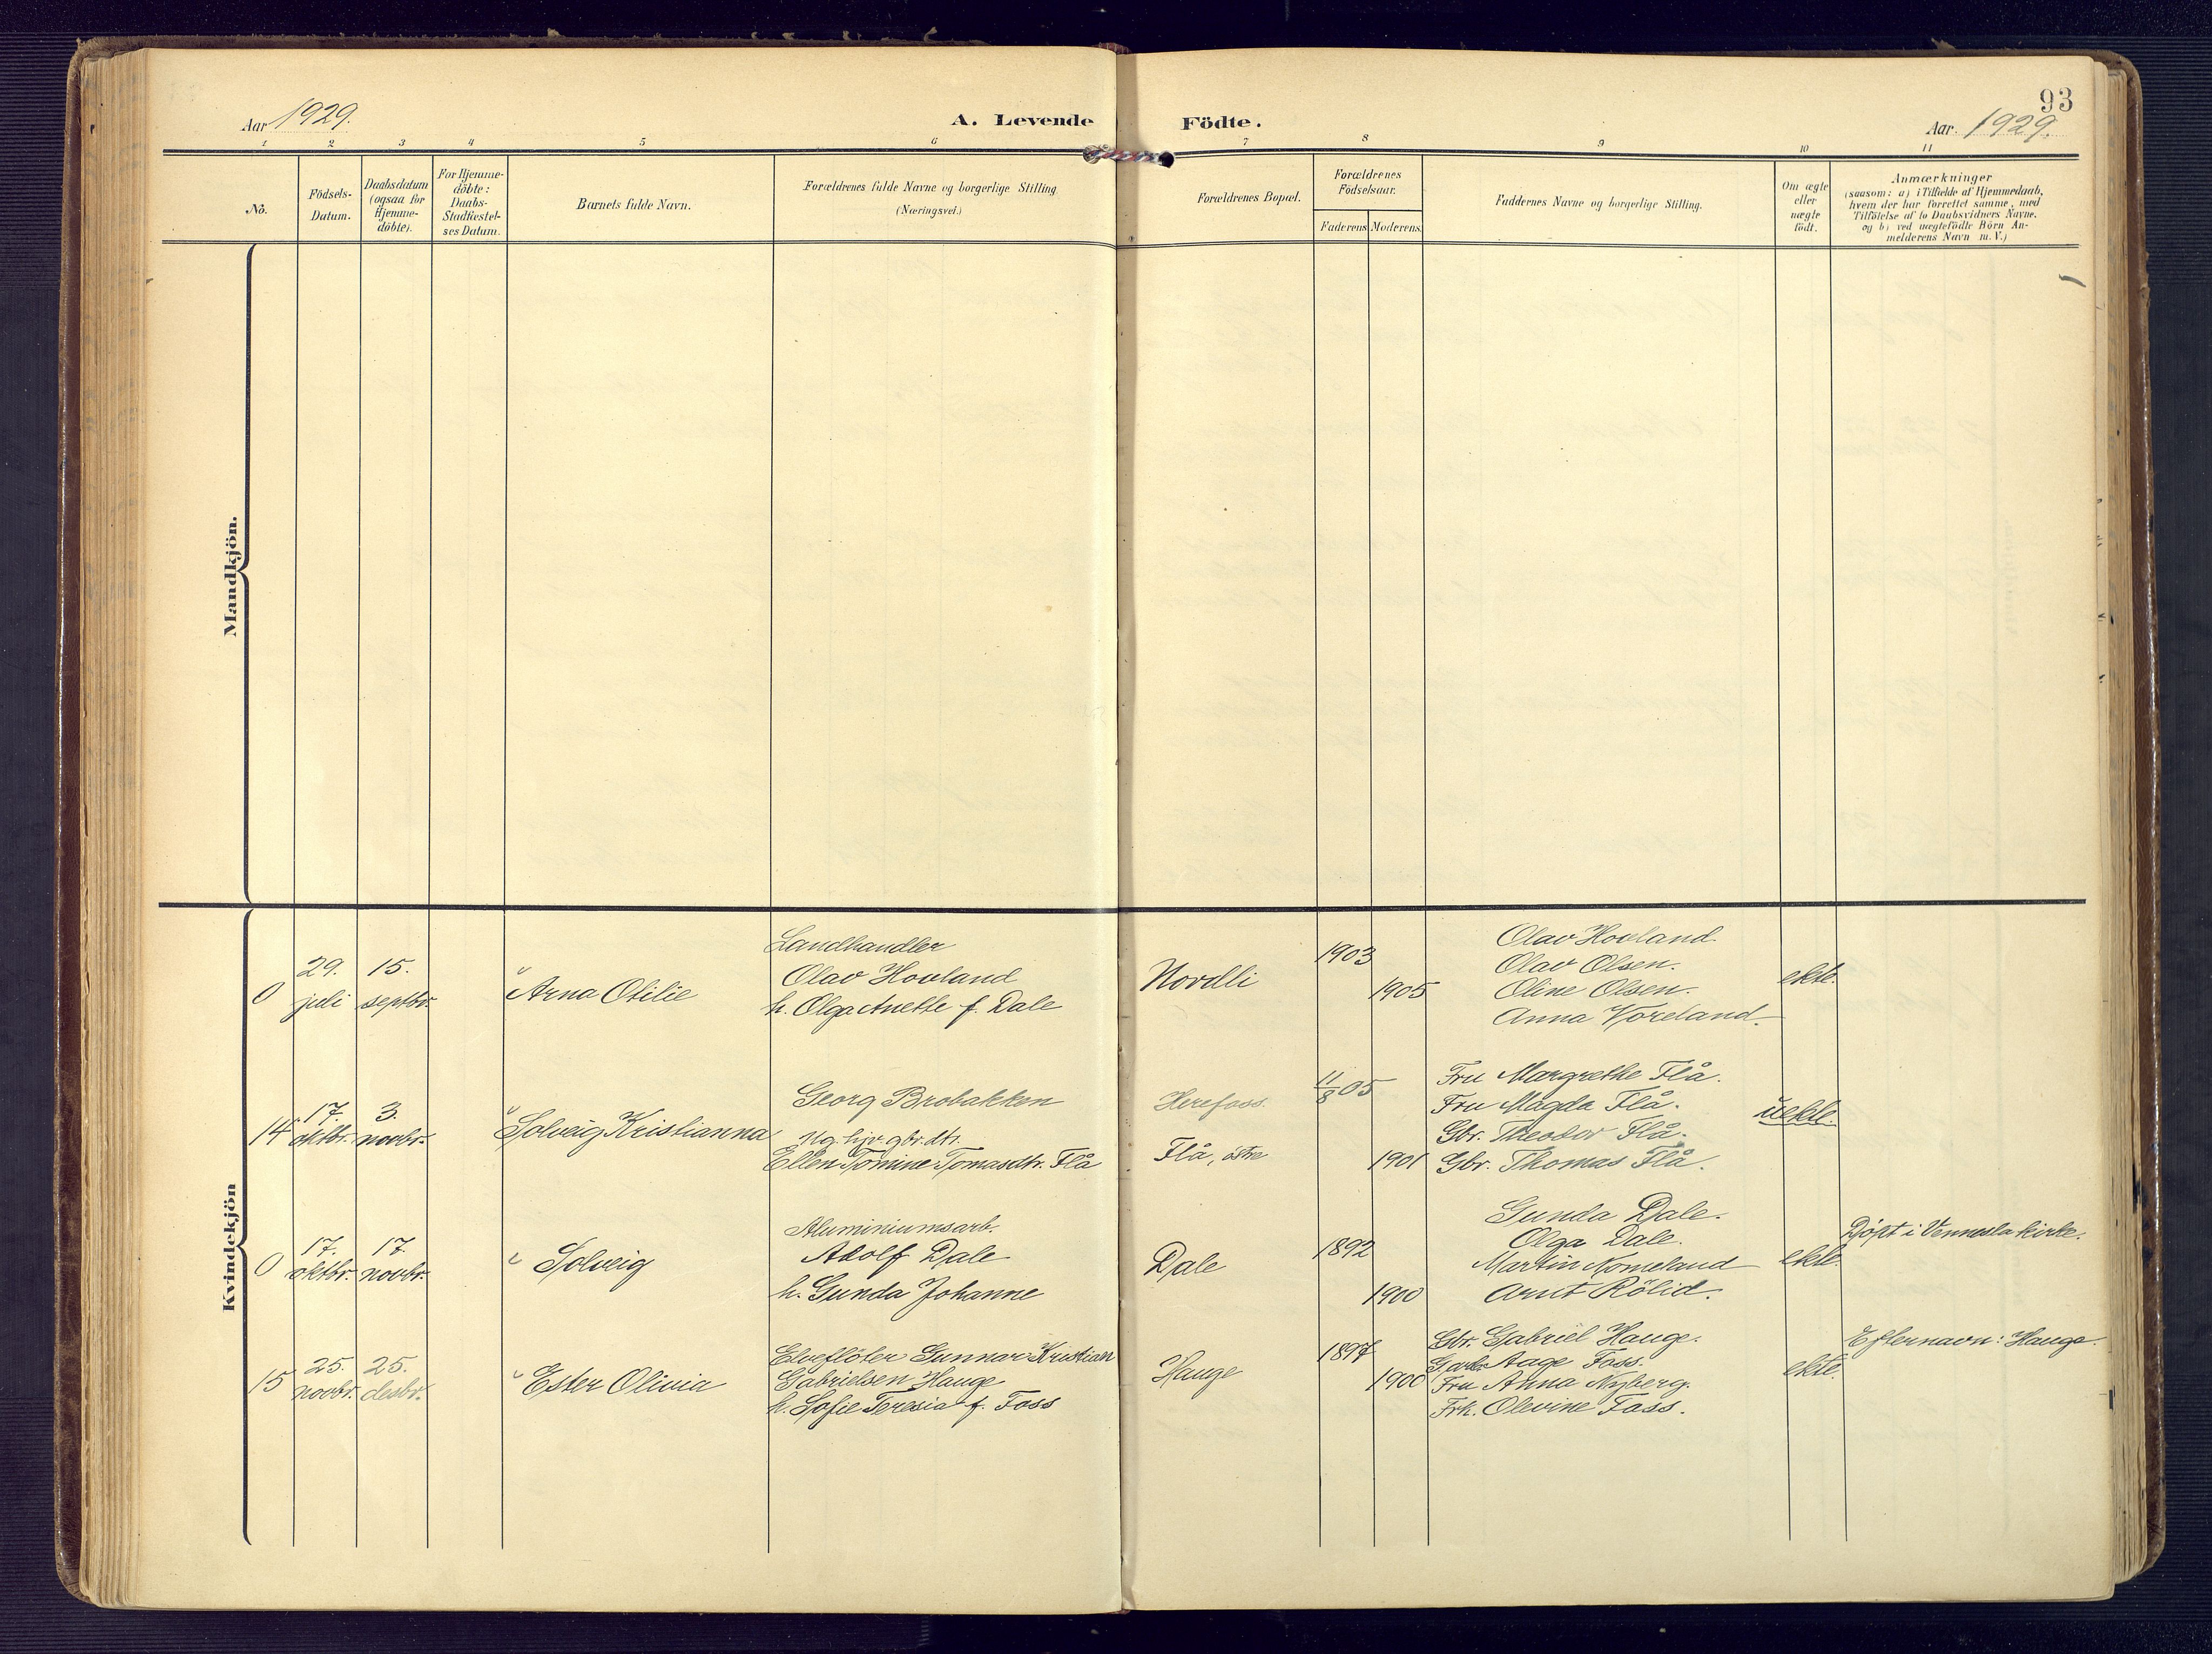 93
Aar 1929.
A. Levende Födte.
Aar. 1929.
1 2 3 4 5 6 7 8 9 10 11
No.
Födsels-
Datum.
Daabsdatum
(ogsaa for
Hjemme-
döbte).
For Hjemme-
döbte:
Daabs-
Stadfæstel-
ses Datum.
Barnets fulde Navn.
Forældrenes fulde Navne og borgerlige Stilling
(Næringsvei.)
Forældrenes Bopæl.
Forældrenes
Födselsaar.
Faderens
Moderens
Faddernes Navne og borgerlige Stilling.
Om ægte
eller
uægte
födt.
Anmærkninger
(saasom: a) i Tilfælde af Hjemmedaab,
hvem der har forrettet samme, med
Tilföielse af to Daabsvidners Navne.
og b) ved uægtefödte Börn An-
melderens Navn m. V.)
Mandkjön.
Kvindekjön
0
29.
juli
15.
septbr.
Arna Otilie
Landhandler
Olav Hovland
h. Olga Anette f. Dale
Nordli
1903
1905
Olav Hovland.
Olav Olsen.
Oline Olsen.
Anna Vöreland.
ekte.
14
17.
oktbr.
3.
novbr.
Solveig Kristianna
Georg Brobakken
Ug. hjv. gbr. dtr.
Ellen Tomine Tomasdtr. Flå
Herefoss
Flå, östre
11/8 05
1901
Fru Margrethe Flå.
Fru Magda Flå.
Gbr. Theodor Flå.
Gbr. Thomas Flå.
uekte.
0
17.
oktbr.
17.
novbr.
Solveig
Aluminiumsarb.
Adolf Dale
h. Gunda Johanne
Dale
1892
1900
Gunda Dale.
Olga Dale.
Martin Nomeland
Arnt Rölid.
ekte.
Döpt i Vennesla kirke.
15
25.
novbr.
25.
desbr.
Ester Olivia
Elveflöter Gunnar Kristian
Gabrielsen Hauge
h. Sofie Teresia f. Foss
Hauge
1897
1900
Gbr. Gabriel Hauge.
Aage Foss.
Fru Anna Nyberg.
Frk. Olevine Foss.
ekte.
Efternavn: Hauge.